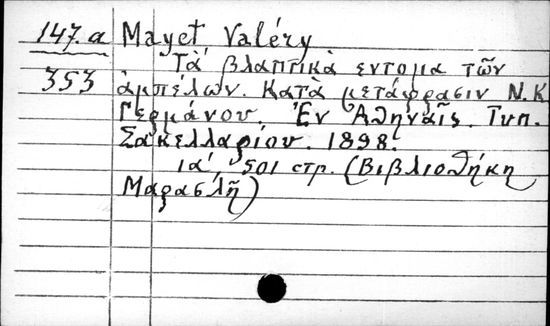 147.a Mayet Valéry
353 Τὰ βλαπτικὰ εντομα τῶν
ἀμπέλων. Κατὰ μετάφρασιν Ν.Κ.
Γερμάνου. Ἐν Ἀθήναῖς. Τυπ.
Σακελλαρίου. 1898.
ια' 501 στρ. (Βιβλιοθήκη
Μαρασλῆ)